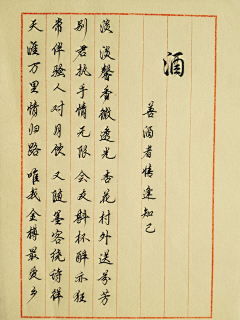 酒
善酒者逢知己
淡淡馨香微透光 杏花村外送芬芳
别君执手情无限 会友斟杯醉亦狂
常伴骚人对月饮 又随墨客诗徉
天涯万里情归路 唯我金樽最爱乡